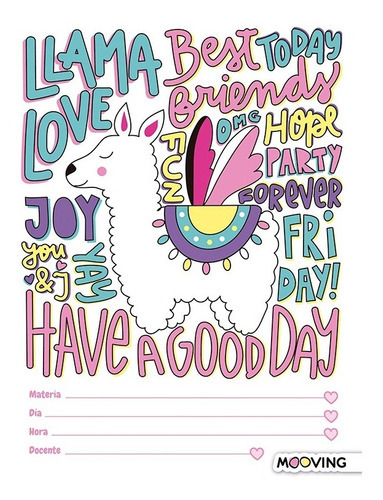 LLAMA
LOVE
Best TODAY
friends
OMG Hope
FUN
PARTY
FOREVER
JOY
FRI
DAY!
you
& j
YAY
HAVE A GOOD DAY
Materia
Día
Hora
Docente
MOOVING